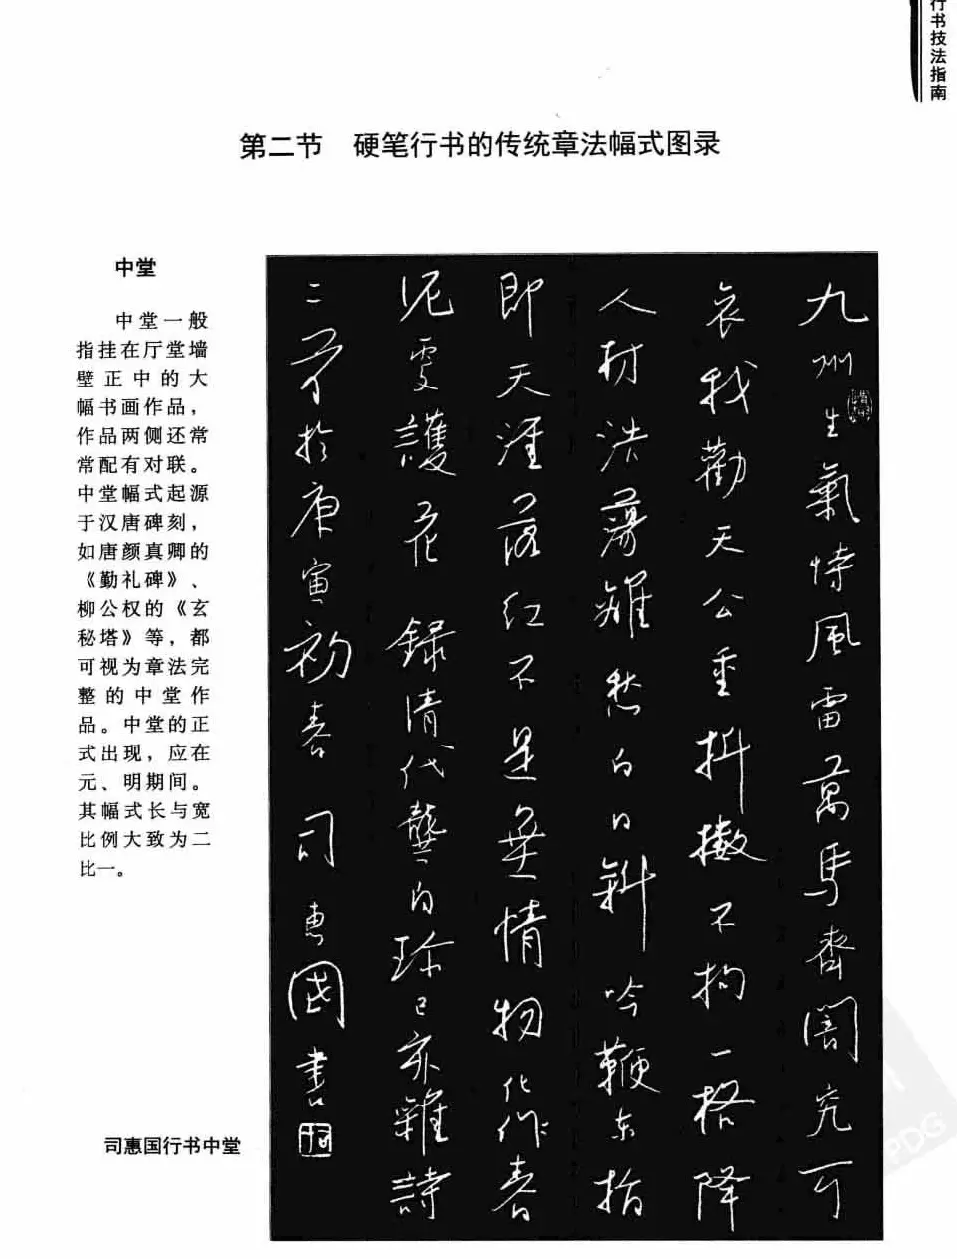 行书技法指南
第二节 硬笔行书的传统章法幅式图录
中堂
中堂一般
指挂在厅堂墙
壁正中的大
幅书画作品，
作品两侧还常
常配有对联。
中堂幅式起源
于汉唐碑刻，
如唐颜真卿的
《勤礼碑》、
柳公权的《玄
秘塔》等，都
可视为章法完
整的中堂作
品。中堂的正
式出现，应在
元、明期间。
其幅式长与宽
比例大致为二
比一。
九州生氣恃風雷萬馬齊闇究可
哀我勸天公重抖擻不拘一格降
人材浩蕩離愁白日斜吟鞭东指
即天涯落红不是無情物化作春
泥更護花 録清代龔自珍己亥雜詩
二首於庚寅初春 司惠國書
司惠国行书中堂
PDG